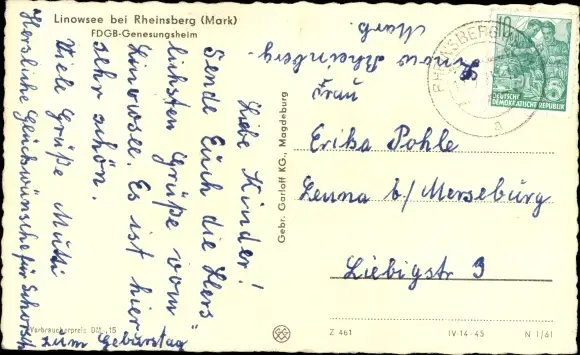 Linowsee bei Rheinsberg (Mark)
FDGB-Genesungsheim
Liebe Kinder!
Sende Euch die Herz
lichsten Grüße vom
Linowsee. Es ist hier
sehr schön.
Viele Grüße Mutti
Herzliche Glückwünsche für Schorsch
zum Geburstag
Rheinsberg
Mark.
Gebr. Garloff KG., Magdeburg
10
DEUTSCHE
DEMOKRATISCHE REPUBLIK
RHEINSBERG
a
Frau
Erika Pohle
Leuna b/ Merseburg
Liebigstr 3
Verbraucherpreis DM -,15
Z 461
IV-14-45
N 1/61